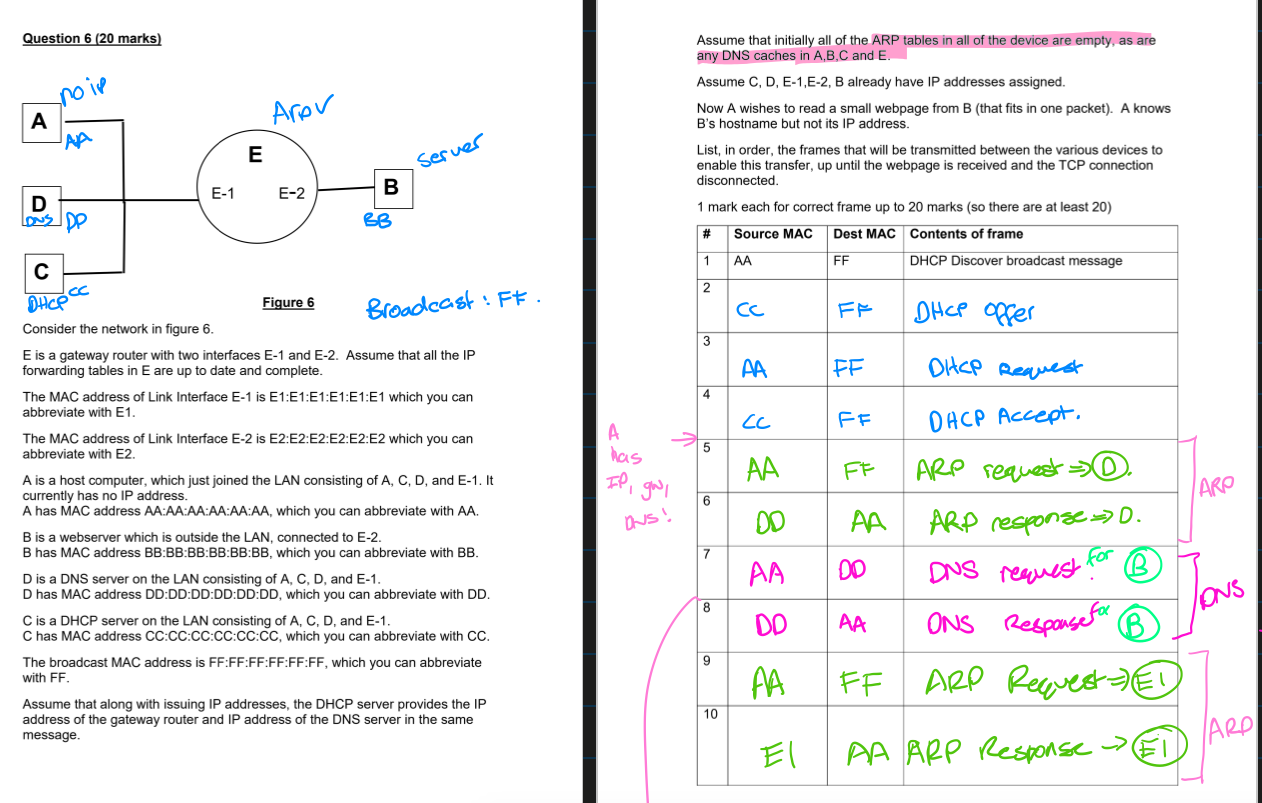 Question 6 (20 marks)
no ip
A
AA
Arpv
E
E-1
E-2
Server
B
BB
D
DNS
DD
C
CC
DHCP
Figure 6
Broadcast : FF.
Consider the network in figure 6.
E is a gateway router with two interfaces E-1 and E-2. Assume that all the IP
forwarding tables in E are up to date and complete.
The MAC address of Link Interface E-1 is E1:E1:E1:E1:E1:E1 which you can
abbreviate with E1.
The MAC address of Link Interface E-2 is E2:E2:E2:E2:E2:E2 which you can
abbreviate with E2.
A is a host computer, which just joined the LAN consisting of A, C, D, and E-1. It
currently has no IP address.
A has MAC address AA:AA:AA:AA:AA:AA, which you can abbreviate with AA.
B is a webserver which is outside the LAN, connected to E-2.
B has MAC address BB:BB:BB:BB:BB:BB, which you can abbreviate with BB.
D is a DNS server on the LAN consisting of A, C, D, and E-1.
D has MAC address DD:DD:DD:DD:DD:DD, which you can abbreviate with DD.
C is a DHCP server on the LAN consisting of A, C, D, and E-1.
C has MAC address CC:CC:CC:CC:CC:CC, which you can abbreviate with CC.
The broadcast MAC address is FF:FF:FF:FF:FF:FF, which you can abbreviate
with FF.
Assume that along with issuing IP addresses, the DHCP server provides the IP
address of the gateway router and IP address of the DNS server in the same
message.
Assume that initially all of the ARP tables in all of the device are empty, as are
any DNS caches in A,B,C and E.
Assume C, D, E-1,E-2, B already have IP addresses assigned.
Now A wishes to read a small webpage from B (that fits in one packet). A knows
B's hostname but not its IP address.
List, in order, the frames that will be transmitted between the various devices to
enable this transfer, up until the webpage is received and the TCP connection
disconnected.
1 mark each for correct frame up to 20 marks (so there are at least 20)
# Source MAC Dest MAC Contents of frame
1 AA FF DHCP Discover broadcast message
2 CC FF DHCP Offer
3 AA FF DHCP Request
4 CC FF DHCP Accept.
A has IP, gw, DNS!
5 AA FF ARP request => D.
6 DD AA ARP response => D.
ARP
7 AA DD DNS request. for B
8 DD AA DNS Response for B
DNS
9 AA FF ARP Request => E1
10 E1 AA ARP Response -> E1
ARP